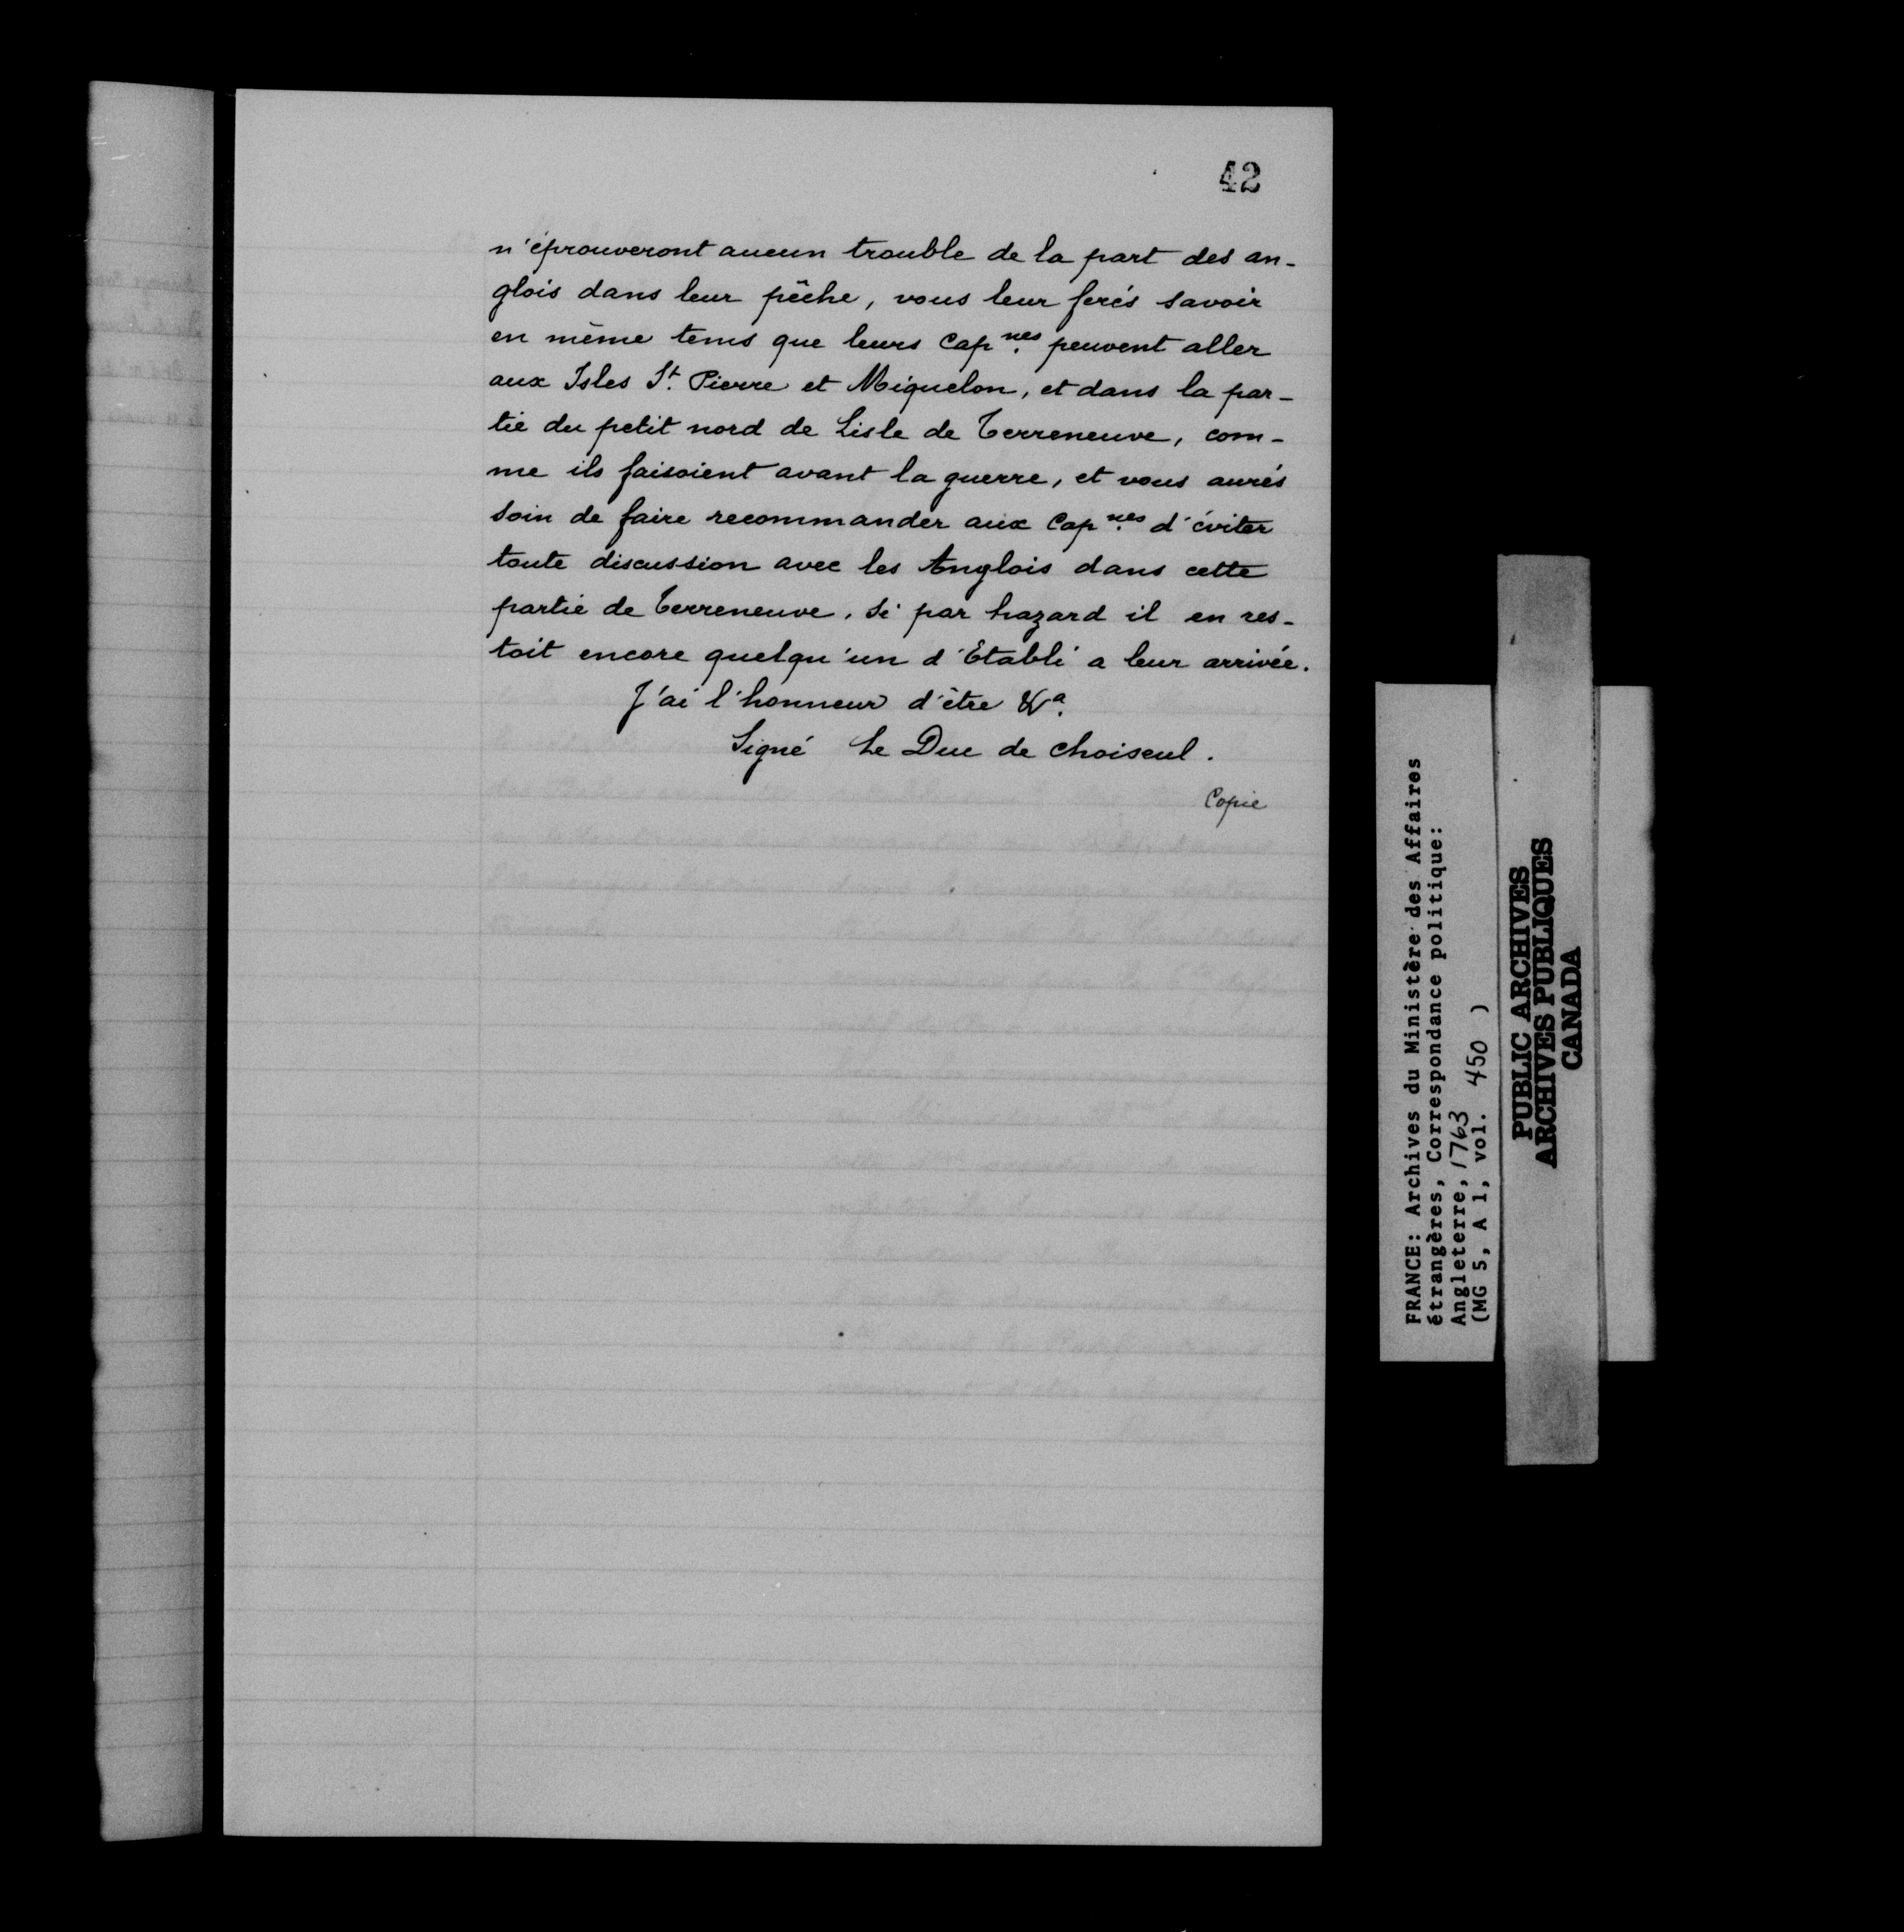 42
n'éprouveront aucun trouble de la part des an-
glois dans leur pêche, vous leur ferés savoir
en même tems que leurs Cap.nes peuvent aller
aux Isles St. Pierre et Miquelon, et dans la par-
tie du petit nord de Lisle de Terreneuve, com-
me ils faisoient avant la guerre, et vous aurés
soin de faire recommander aux Cap.nes d'éviter
toute discussion avec les Anglois dans cette
partie de Terreneuve, si par hazard il en res-
toit encore quelqu'un d'Etabli a leur arrivée.
J'ai l'honneur d'être &a.
Signé Le Duc de Choiseul.
Copie
FRANCE: Archives du Ministère des Affaires
étrangères, Correspondance politique:
Angleterre, 1763
(MG 5, A 1, vol. 450 )
PUBLIC ARCHIVES
ARCHIVES PUBLIQUES
CANADA